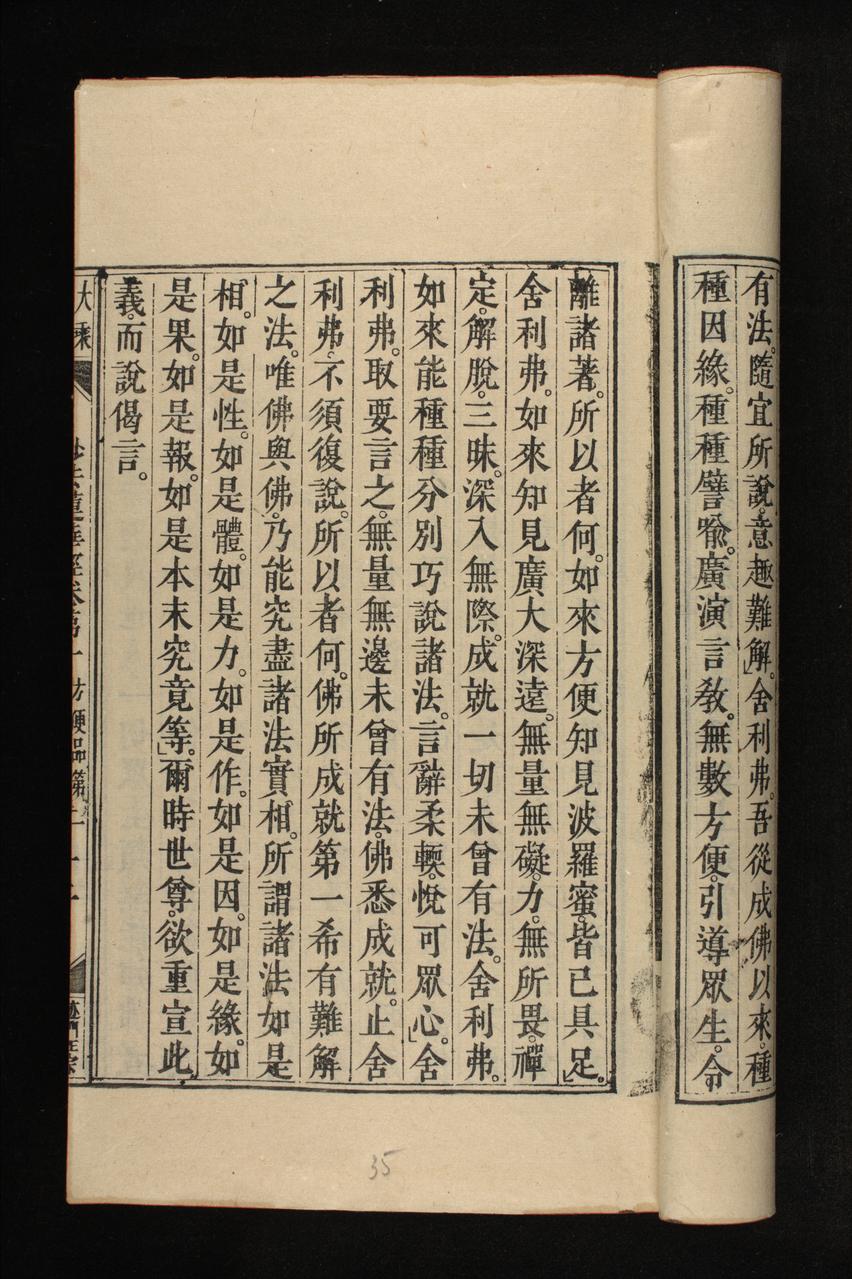 有法。隨宜所說。意趣難解。」舍利弗。吾從成佛以來。種
種因緣。種種譬喻。廣演言教。無數方便。引導眾生。令
離諸著。所以者何。如來方便知見波羅蜜。皆已具足。」
舍利弗。如來知見廣大深遠。無量無礙。力。無所畏。禪
定。解脫。三昧。深入無際。成就一切未曾有法。舍利弗。
如來能種種分別巧說諸法。言辭柔輭。悅可眾心。」舍
利弗。取要言之。無量無邊未曾有法。佛悉成就。止舍
利弗。不須復說。所以者何。佛所成就第一希有難解
之法。唯佛與佛。乃能究盡諸法實相。所謂諸法如是
相。如是性。如是體。如是力。如是作。如是因。如是緣。如
是果。如是報。如是本末究竟等。」爾時世尊。欲重宣此
義。而說偈言。
大乘
妙法蓮華經卷第一 方便品第二
35